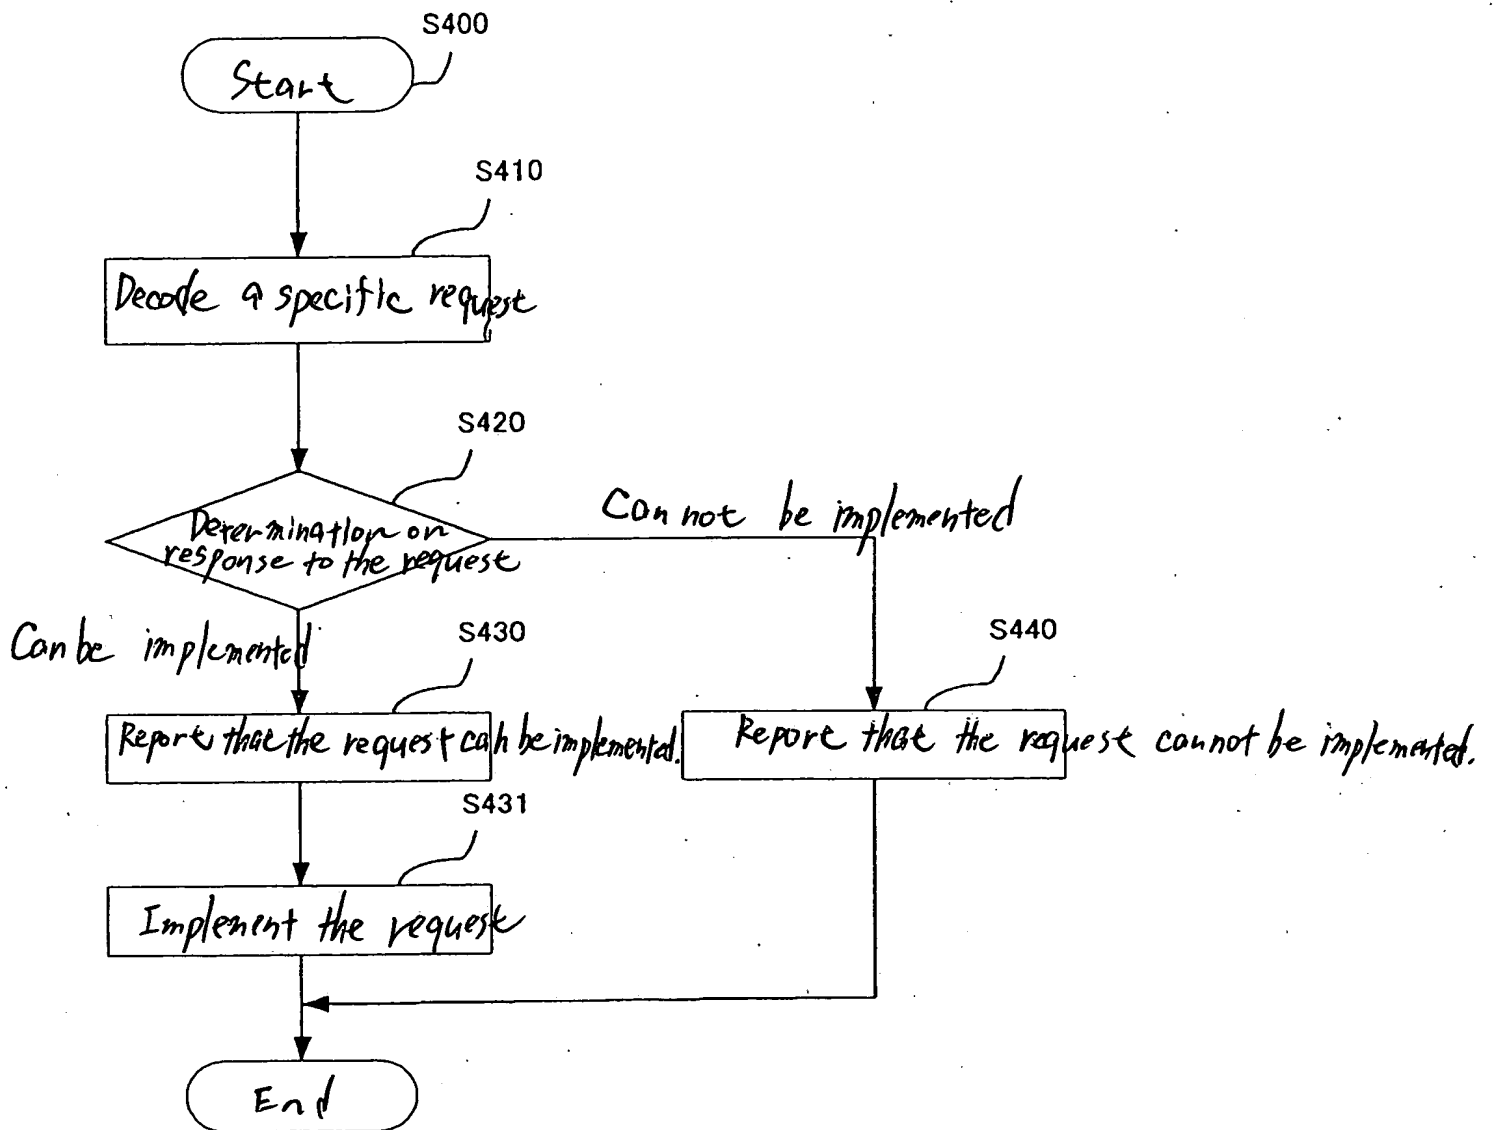 S400
Start
S410
Decode a specific request
S420
Determination on
response to the request
Cannot be implemented
Can be implemented
S430
S440
Report that the request can be implemented.
Report that the request cannot be implemented.
S431
Implement the request
End